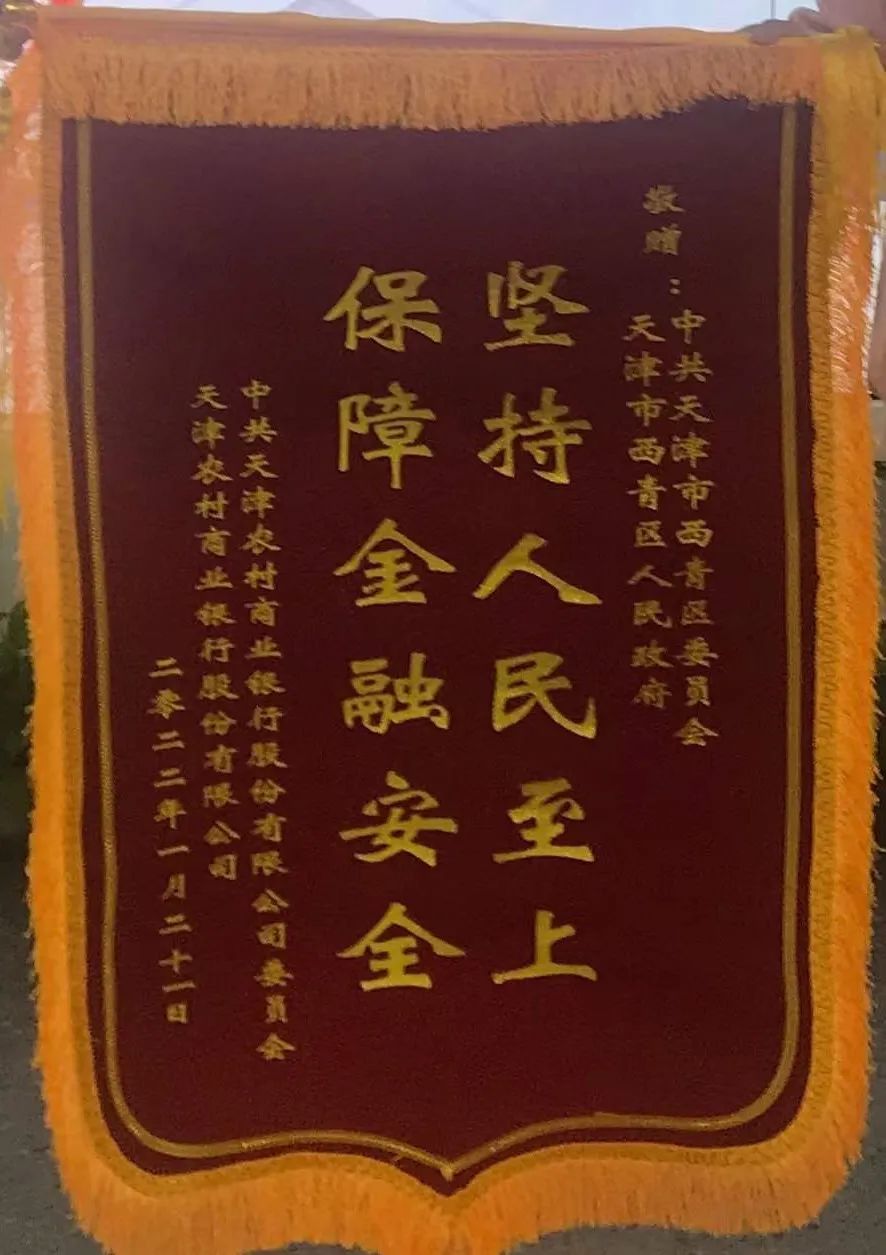 敬赠：中共天津市西青区委员会
天津市西青区人民政府
坚持人民至上
保障金融安全
中共天津农村商业银行股份有限公司委员会
天津农村商业银行股份有限公司
二零二二年一月二十一日